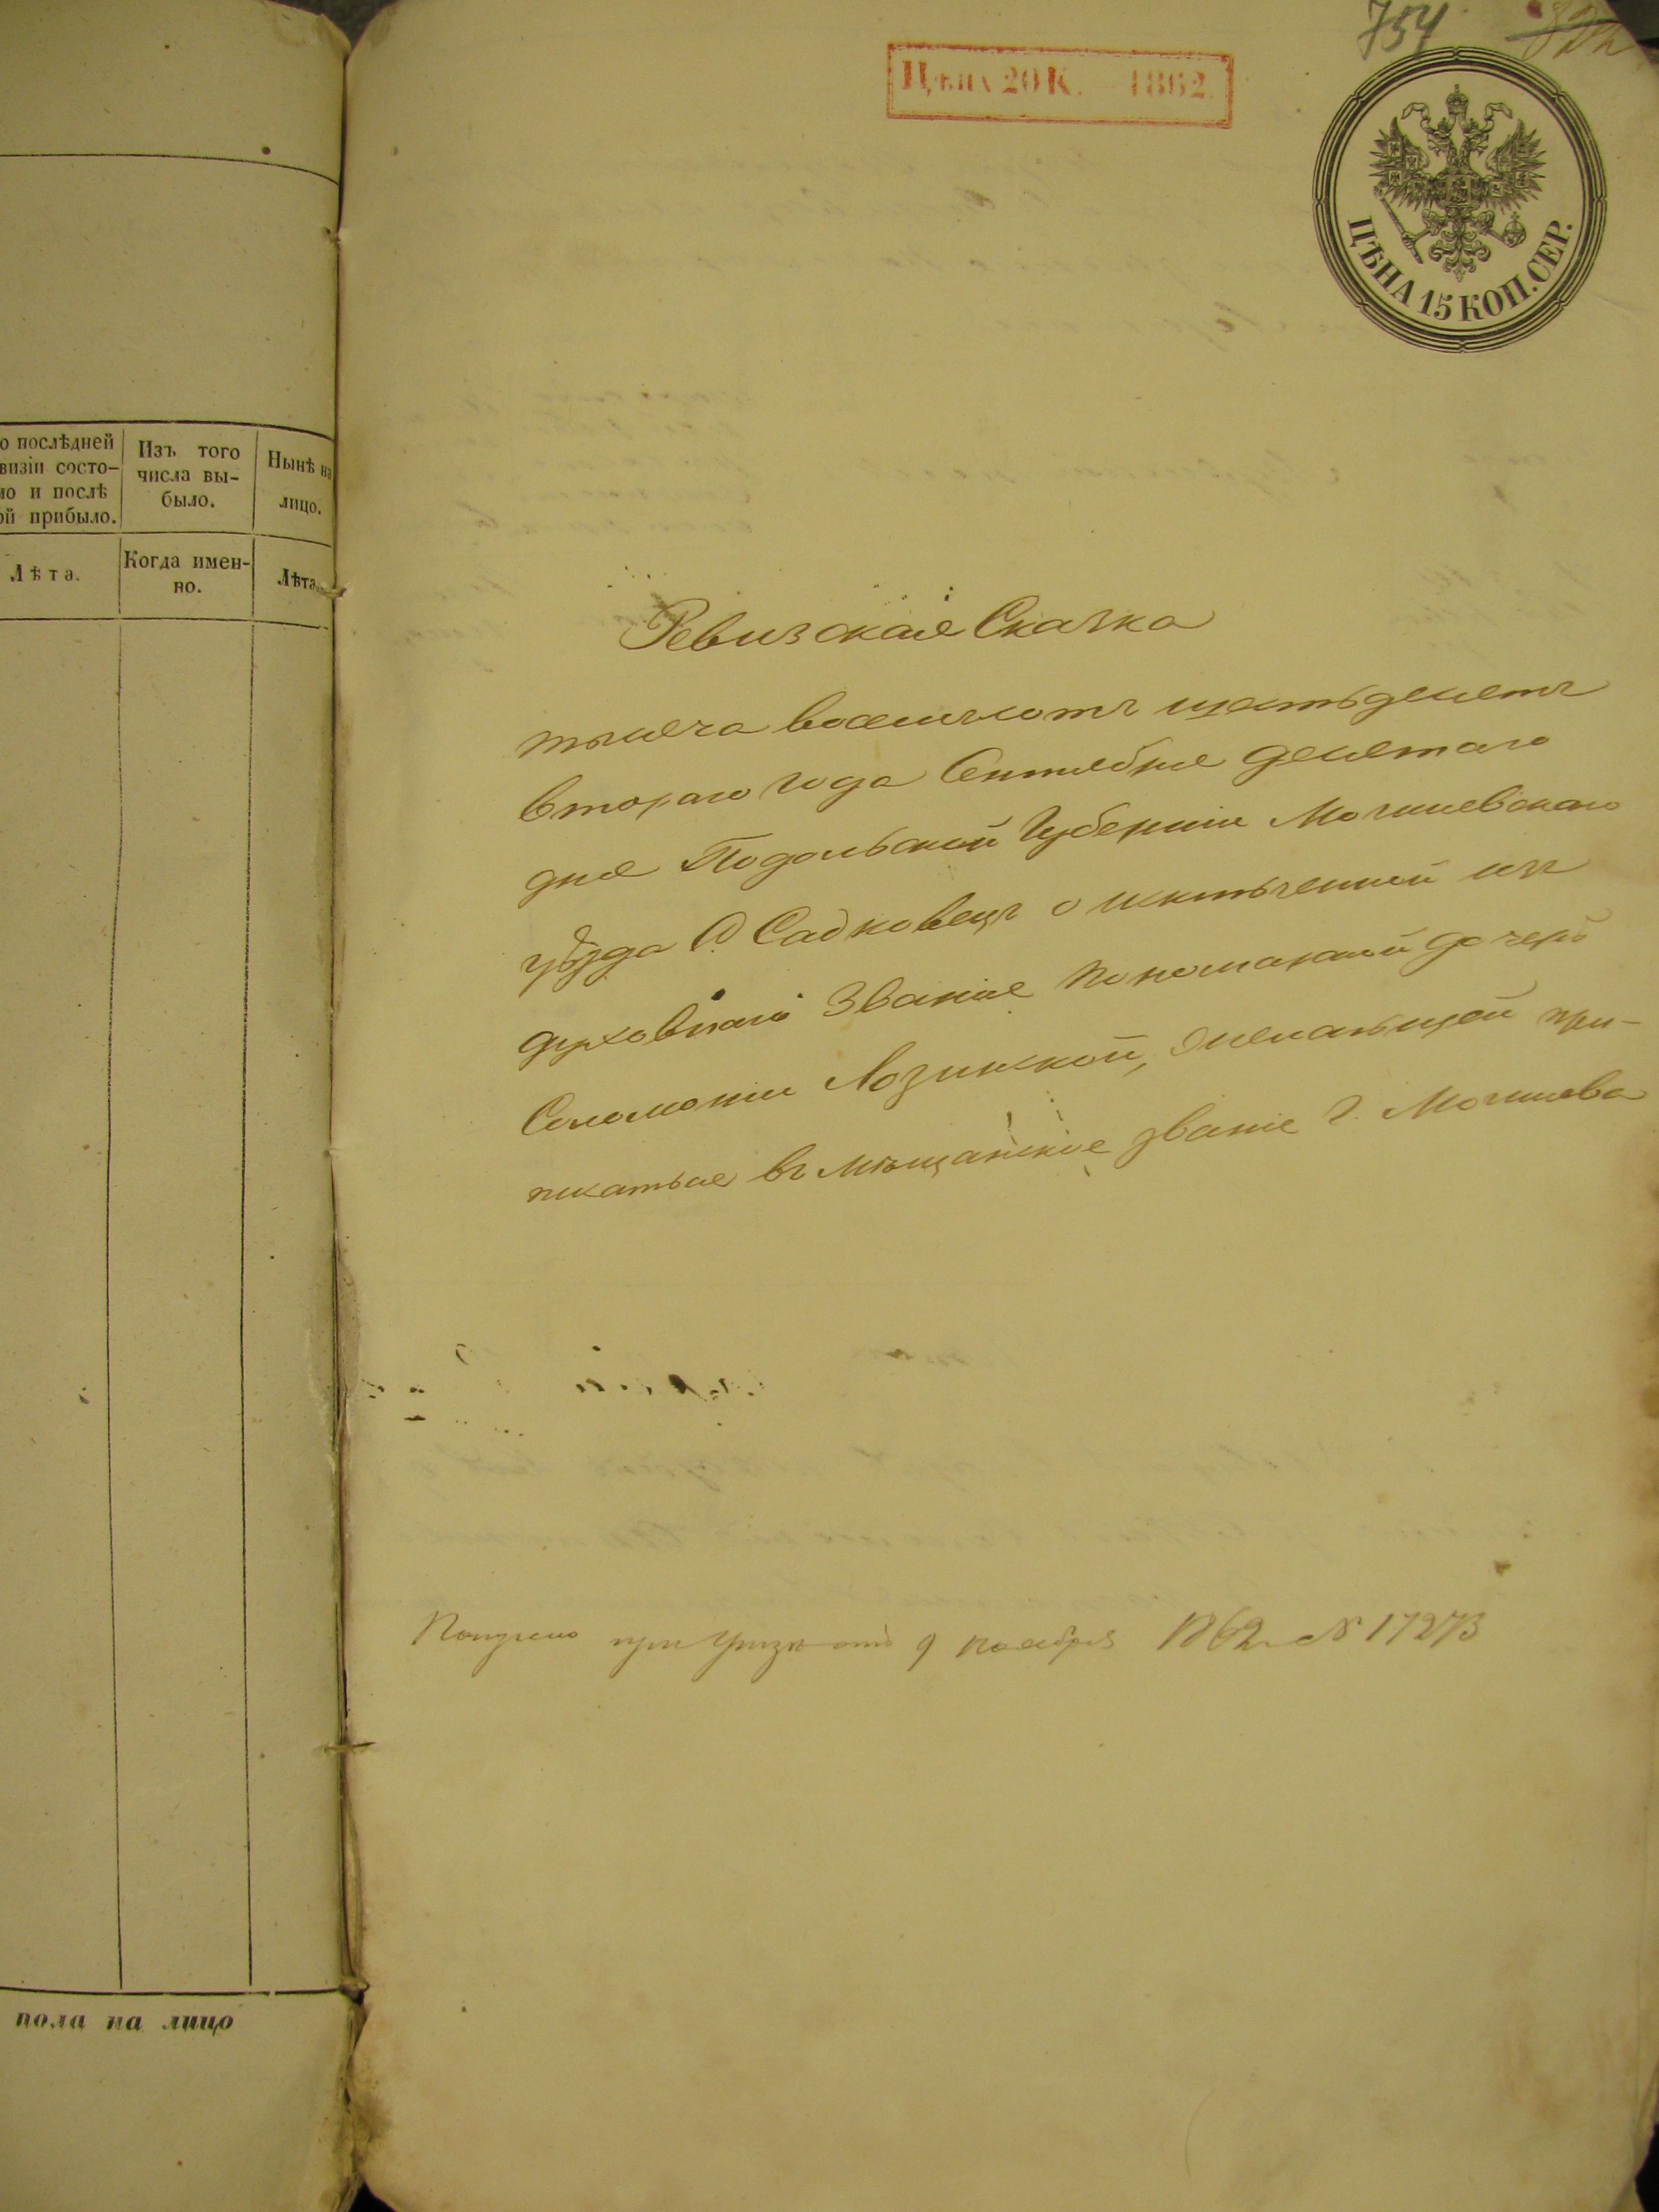 о послѣдней
визіи состо-
ло и послѣ
ой прибыло.
Изъ того
числа вы-
было.
Нынѣ на
лицо.
Лѣта.
Когда имен-
но.
Лѣта.
пола на лицо
754
Цѣна 20 К. 1862.
ЦѢНА 15 КОП. СЕР.
Ревизская Сказка
тысяча восемьсотъ шестьдесятъ
втораго года Сентября десятаго
дня Подольской Губерніи Могилевскаго
уѣзда С. Садковецъ о исключенной изъ
духовнаго званія пономарской дочери
Соломоніи Лозинской, желающей при-
писаться въ мѣщанское званіе г. Могилева
Получено при Указѣ отъ 9 ноября 1862 № 17273